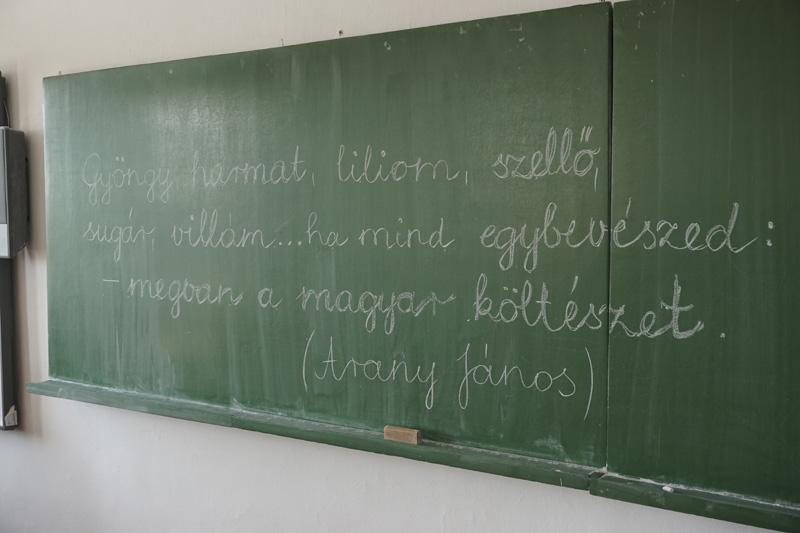 Gyöngy, harmat, liliom, szellő,
sugár, villám...ha mind egybevészed:
– megvan a magyar költészet.
(Arany János)